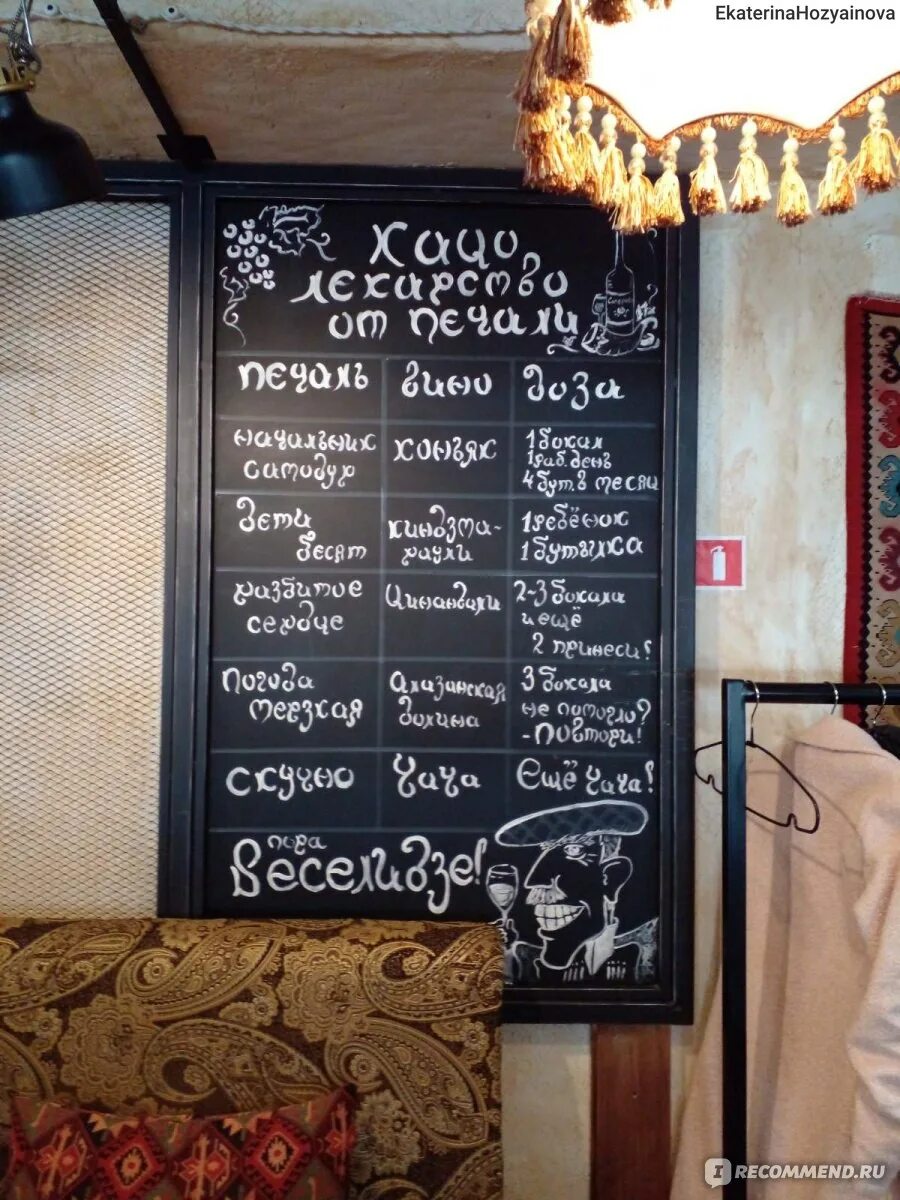 EkaterinaHozyainova
Кацо,
лекарство
от печали
печаль вино доза
начальник
самодур
коньяк
1 бокал
1 раб. день
4 бут. в месяц
дети
бесят
киндзма-
раули
1 ребёнок
1 бутылка
разбитое
сердце
Цинандали
2-3 бокала
и ещё
2 принеси!
Погода
мерзкая
Алазанская
долина
3 бокала
не помогло?
- Повтори!
скучно Чача Ещё Чача!
пора
Веселидзе!
IRECOMMEND.RU